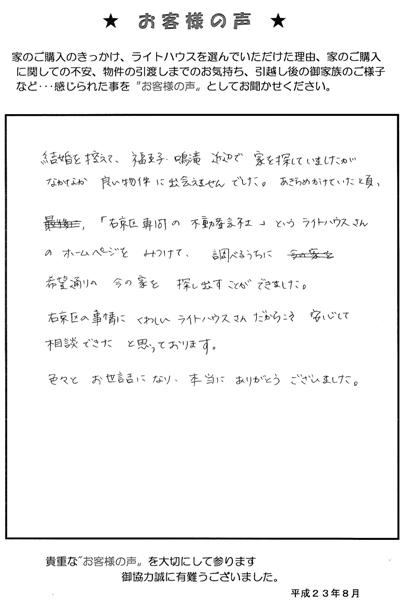 ★ お客様の声 ★
家のご購入のきっかけ、ライトハウスを選んでいただけた理由、家のご購入
に関しての不安、物件の引渡しまでのお気持ち、引越し後の御家族のご様子
など・・・感じられた事を“お客様の声”としてお聞かせください。
結婚を控えて、福王子・鳴滝 近辺で 家を探していましたが
なかなか 良い物件に出会えませんでした。あきらめかけていた頃、
「右京区専門の不動産会社」という ライトハウスさん
の ホームページを みつけて、調べるうちに 今の家を
希望通りの 今の家を 探し出すことができました。
右京区の事情に くわしい ライトハウスさんだからこそ 安心して
相談できた と思っております。
色々と お世話になり、本当に ありがとう ございました。
貴重な“お客様の声”を大切にして参ります
御協力誠に有難うございました。
平成23年8月